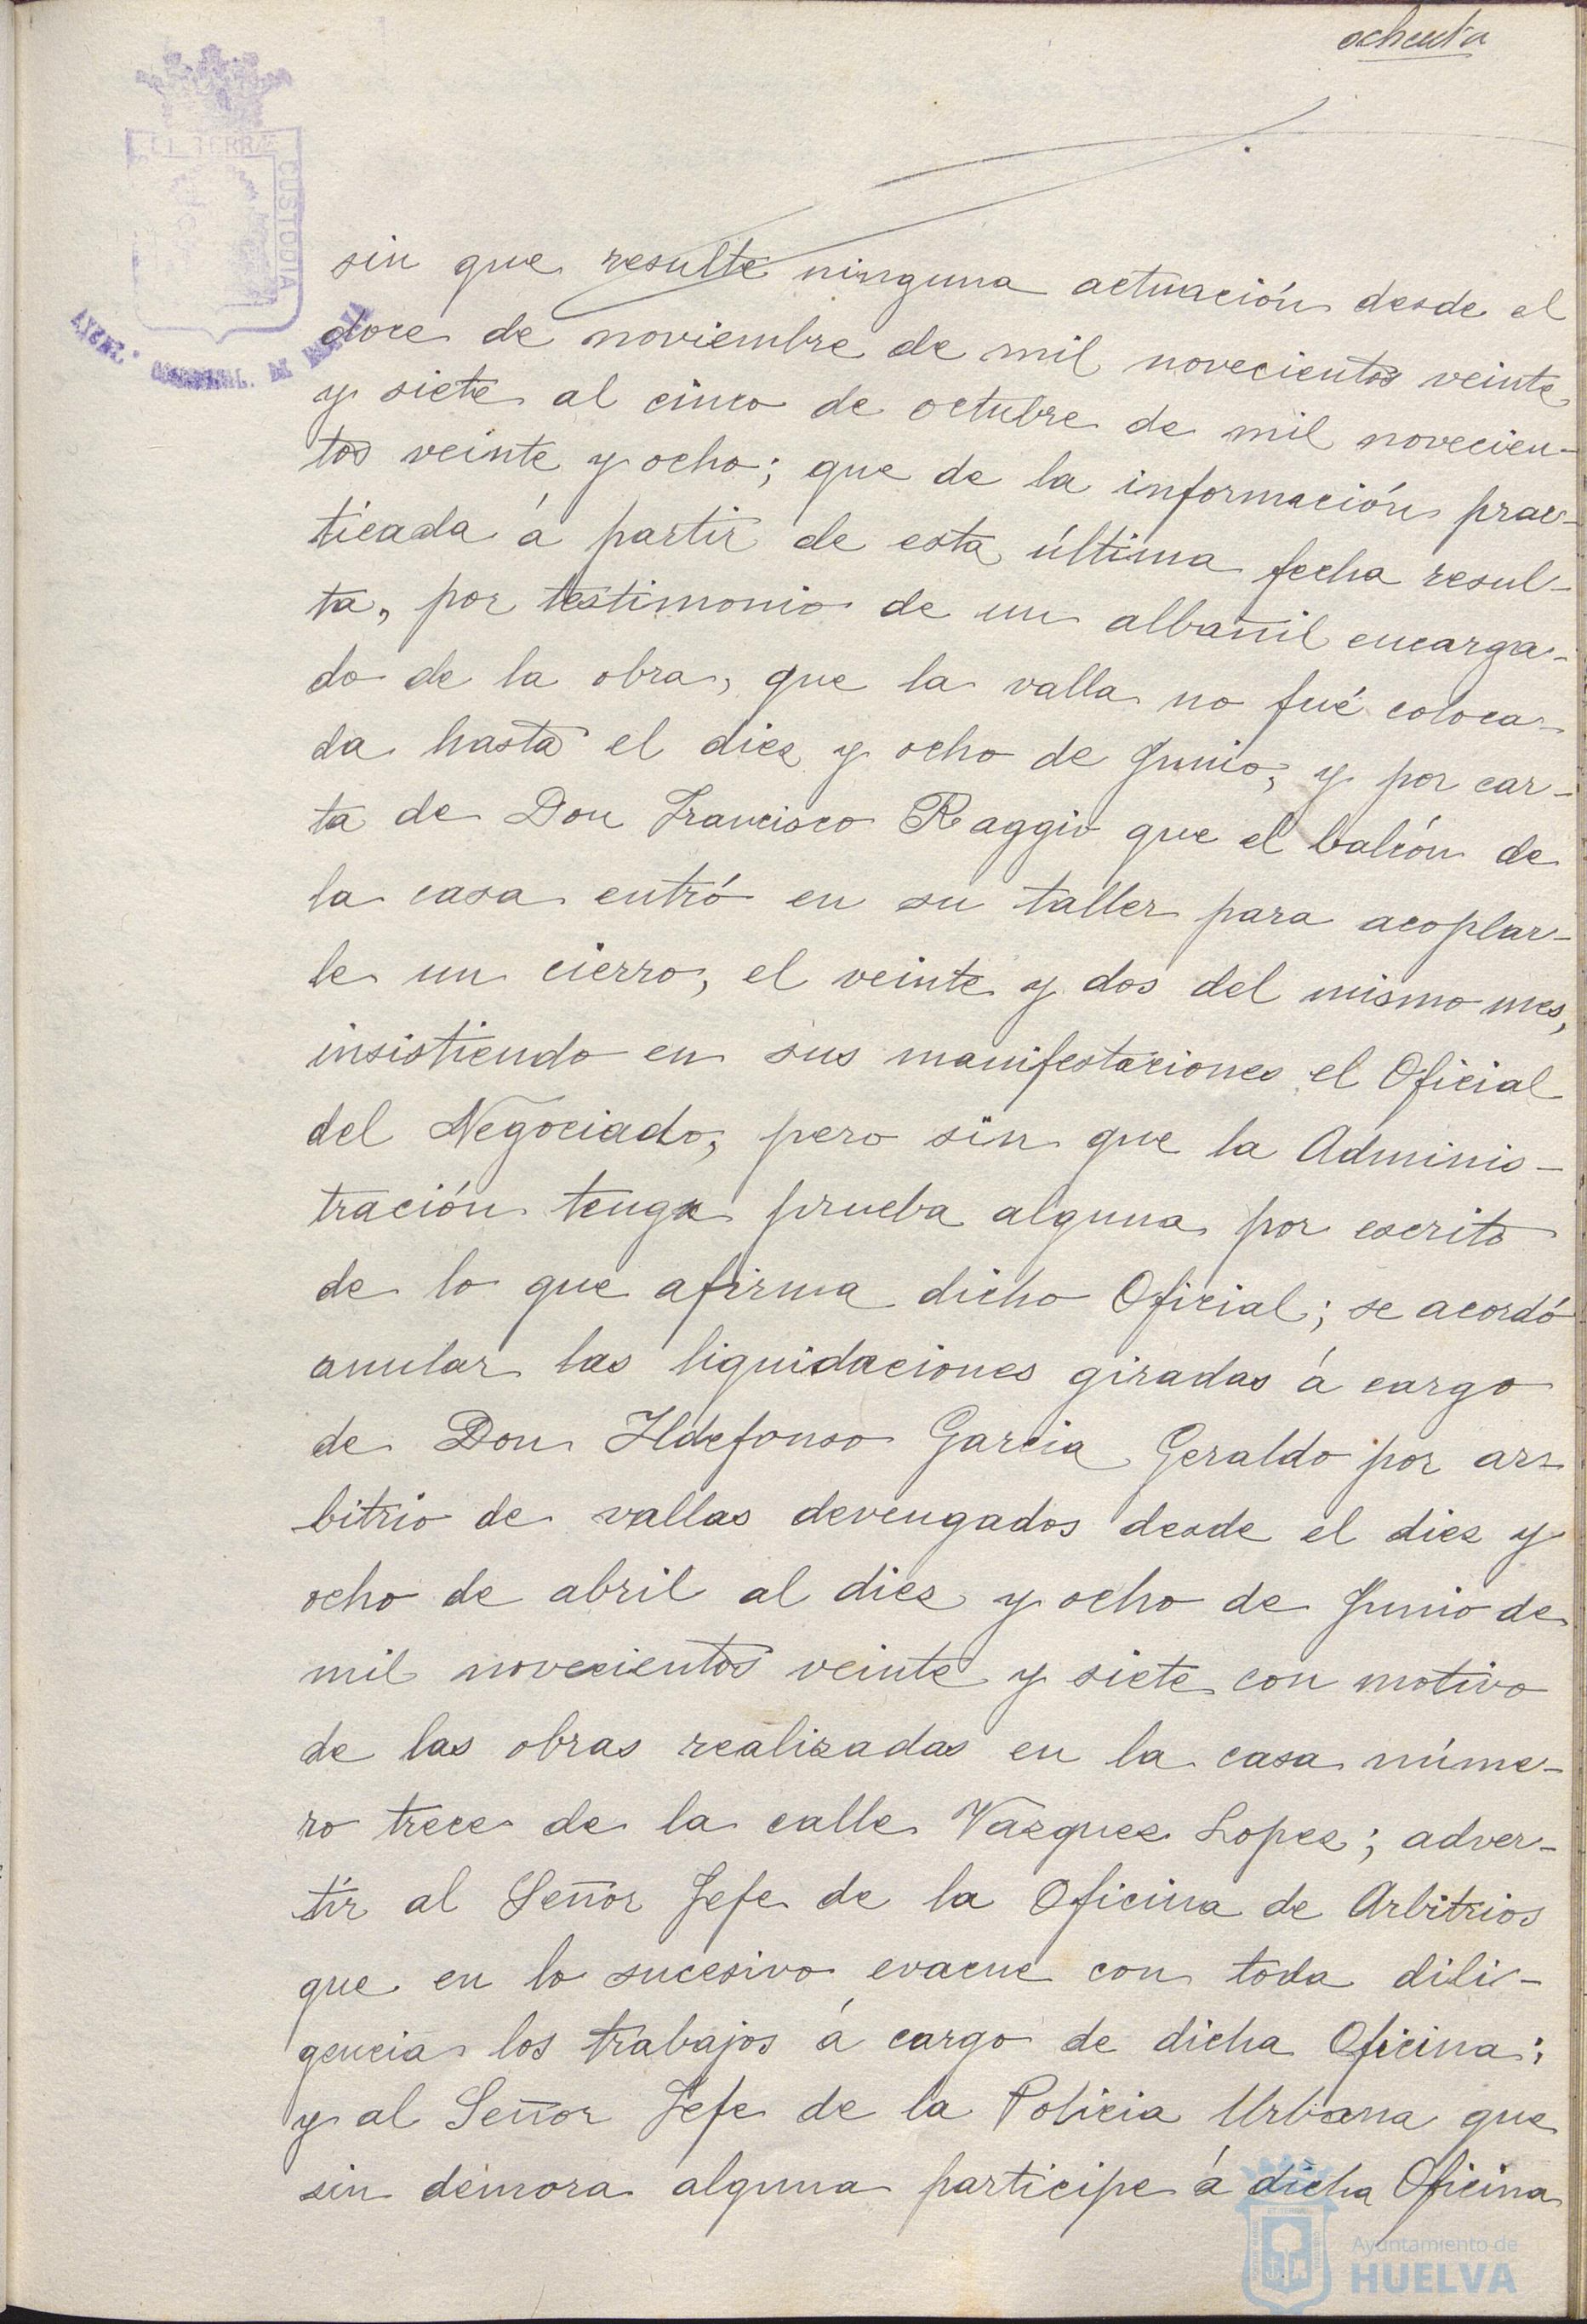 ochenta
sin que resulte ninguna actuación desde el
doce de noviembre de mil novecientos veinte
y siete al cinco de octubre de mil novecien-
tos veinte y ocho; que de la información prac-
ticada á partir de esta última fecha resul-
ta, por testimonio de un albañil encarga-
do de la obra, que la valla no fué coloca-
da hasta el diez y ocho de Junio, y por car-
ta de Don Francisco Raggio que el balcón de
la casa entró en su taller para acoplar-
le un cierro, el veinte y dos del mismo mes,
insistiendo en sus manifestaciones el Oficial
del Negociado, pero sin que la Adminis-
tración tenga prueba alguna por escrito
de lo que afirma dicho Oficial; se acordó
anular las liquidaciones giradas á cargo
de Don Ildefonso Garcia Geraldo por ar-
bitrio de vallas devengados desde el diez y
ocho de abril al diez y ocho de Junio de
mil novecientos veinte y siete con motivo
de las obras realizadas en la casa núme-
ro trece de la calle Vazquez Lopez; adver-
tir al Señor Jefe de la Oficina de Arbitrios
que en lo sucesivo evacue con toda dili-
gencia los trabajos á cargo de dicha Oficina;
y al Señor Jefe de la Policia Urbana que
sin demora alguna participe á dicha Oficina
TERRÆ
CUSTODIA
DE
Ayuntamiento de
HUELVA